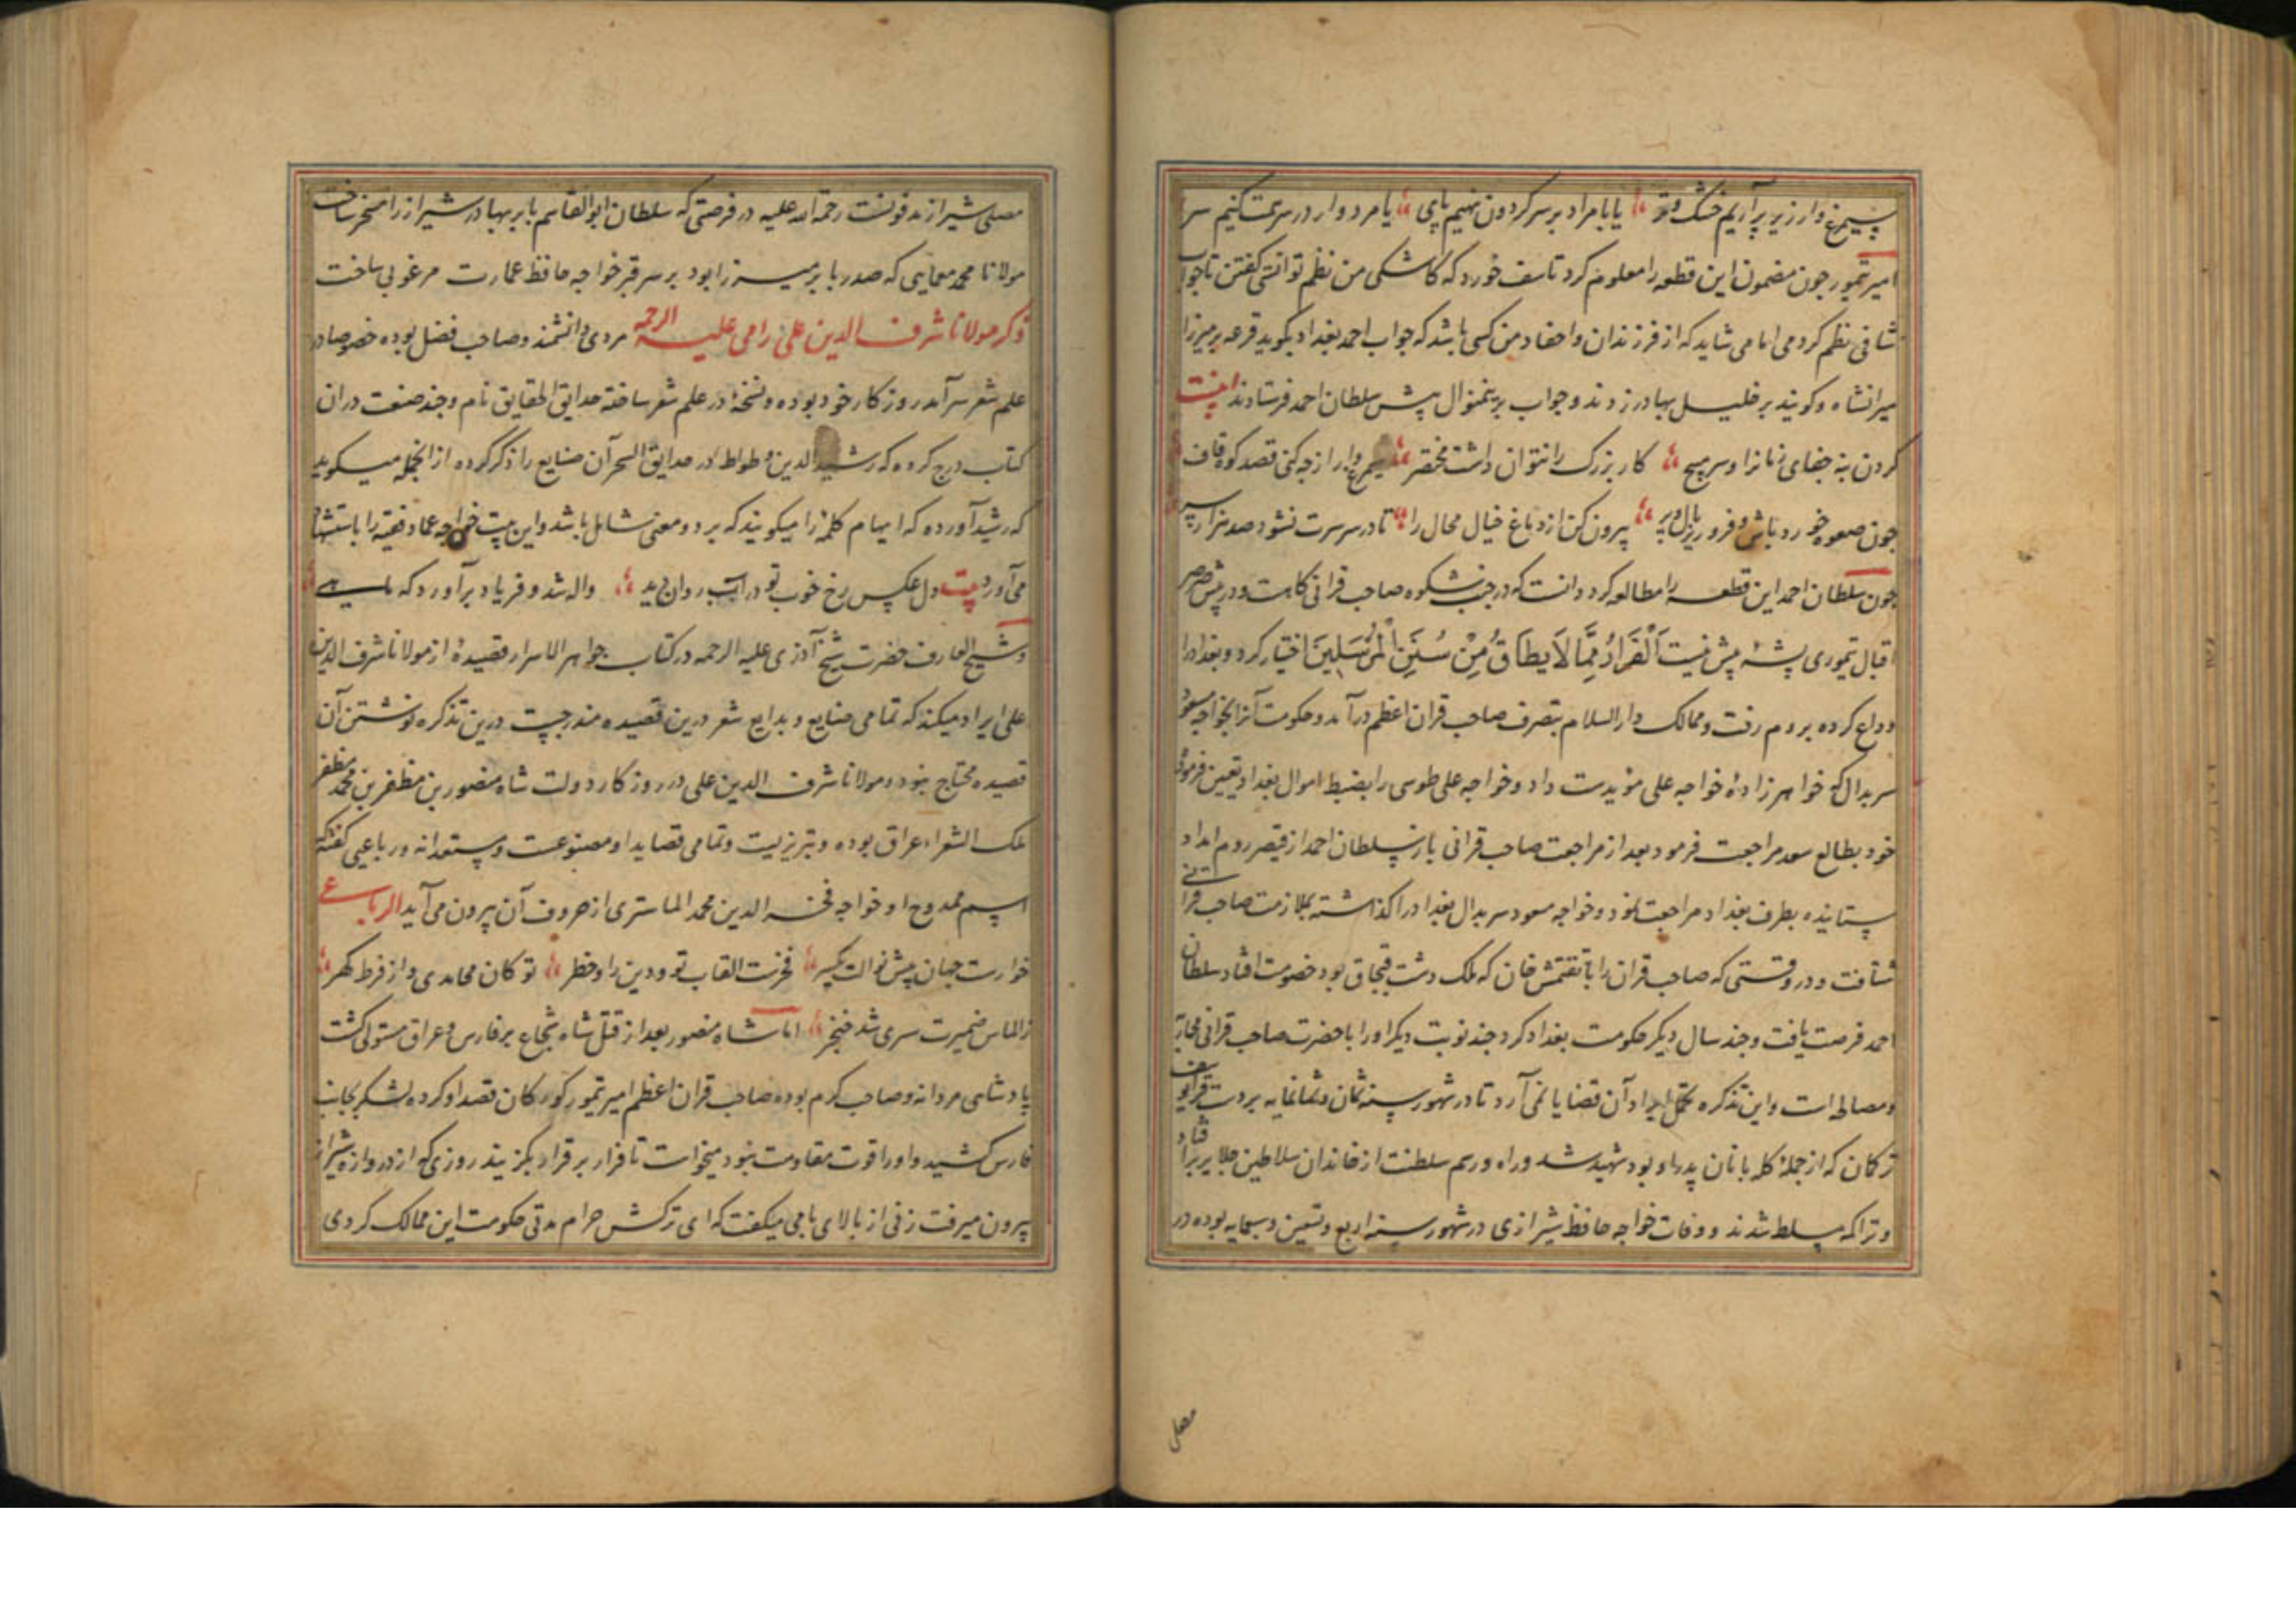 سیمرغ وار زیر پر آریم خشک و تر یا با مراد بر سر کردون نهیم پای یا مردوار در سر همت کنیم سر
امیر تیمور چون مضمون این قطعه را معلوم کرد تاسف خورد که کاشکی من نظم توانستی کفتن تا جواب
شافی نظم کردمی اما می شاید که از فرزندان و احفاد من کسی باشد که جواب احمد بغداد بکوید قرعه بر میرزا
میرانشاه و کویند بر خلیل بهادر زدند و جواب برینمنوال پیش سلطان احمد فرستادند اینست
کردن بنه جفای زمانرا و سر مپیچ کار بزرک را نتوان داشت مختصر سیمرغ وار از چه کنی قصد کوه قاف
چون صعوه خورد باش و فرو ریز بال و پر بیرون کن از دماغ خیال محال را تا در سر سرت نشود صد هزار سر
چون سلطان احمد این قطعه را مطالعه کرد دانست که در جنب شکوه صاحب قرانی کاهست و در پیش صرصر
اقبال تیموری پشه پیش نیست اَلْفَرَارُ مِمَّا لَا یطَاقُ مِنْ سُنَنِ الْمُرْسَلِینَ اختیار کرد و بغداد را
وداع کرده بروم رفت و ممالک دار السلام بتصرف صاحب قران اعظم در آمد و حکومت آنرا بخواجه مسعود
سربدال که خواهر زادهٔ خواجه علی مؤیدست داد و خواجه علی طوسی را بضبط اموال بغداد تعیین فرموده
خود بطالع سعد مراجعت فرمود بعد از مراجعت صاحب قرانی باز سلطان احمد از قیصر روم امداد
ستانیده بطرف بغداد مراجعت نمود و خواجه مسعود سربدال بغداد را کذاشته بملازمت صاحب قرانی
شتافت و در وقتی که صاحب قران را با تقتمش خان که ملک دشت قبجاق بود خصومت افتاد سلطان
احمد فرصت یافت و چند سال دیکر حکومت بغداد کرد چند نوبت دیکر او را با حضرت صاحب قرانی محاربه
و مصالحه است و این تذکره تحمل ایراد آن قضایا نمی آرد تا در شهور سنه ثمان و ثمانمایه بر دست قرا یوسف
ترکمان که از جملهٔ کله بانان پدر او بود شهید شد و راه و رسم سلطنت از خاندان سلاطین جلایر بر افتاد
و تراکمه مسلط شدند و وفات خواجه حافظ شیرازی در شهور سنه اربع و تسعین و سبعمایه بوده در
مصلی
مصلی شیراز مدفونست رحمة الله علیه در فرصتی که سلطان ابو القاسم بابر بهادر شیراز را مسخر ساخت
مولانا محمد معمایی که صدر بابر میرزا بود بر سر قبر خواجه حافظ عمارت مرغوبی ساخت
ذکر مولانا شرف الدین علی رامی علیه الرحمه مردی دانشمند و صاحب فضل بوده خصوصا در
علم شعر سر آمد روزکار خود بوده و نسخهٔ در علم شعر ساخته حدایق الحقایق نام و چند صنعت در ان
کتاب درج کرده که رشید الدین وطواط در حدایق السحر آن صنایع را ذکر کرده از انجمله میکوید
که رشید آورده که ایهام کلمه را میکویند که بر دو معنی شامل باشد و این بیت خواجه عماد فقیه را باستشهاد
می آورد بیت دل عکس رخ خوب تو در آب روان دید واله شد و فریاد بر آورد که ماهی
و شیخ العارف حضرت شیخ آذری علیه الرحمه در کتاب جواهر الاسرار قصیدهٔ از مولانا شرف الدین
علی ایراد میکند که تمامی صنایع و بدایع شعر درین قصیده مندرجست درین تذکره نوشتن آن
قصیده محتاج نبود و مولانا شرف الدین علی در روزکار دولت شاه منصور بن مظفر بن محمد مظفر
ملک الشعراء عراق بوده و تبریزیست و تمامی قصاید او مصنوعست و مستعدانه و رباعیی کفته که
اسم ممدوح او خواجه فخر الدین محمد الماستری از حروف آن بیرون می آید الرباعی
خوارست جهان پیش نوالت یکسر فخرست القاب تو و دین را و خطر تو کان محامدی و از فرط کهر
ز الماس ضمیرت سری شد خنجر اما شاه منصور بعد از قتل شاه شجاع بر فارس و عراق مستولی کشت
پادشاهی مردانه و صاحب کرم بوده صاحب قران اعظم امیر تیمور کورکان قصد او کرده لشکر بجانب
فارس کشید و او را قوت مقاومت نبود میخواست تا فرار بر قرار بکزیند روزی که از دروازه شیراز
بیرون میرفت زنی از بالای بامی میکفت که ای ترکش حرام مدتی حکومت این ممالک کردی